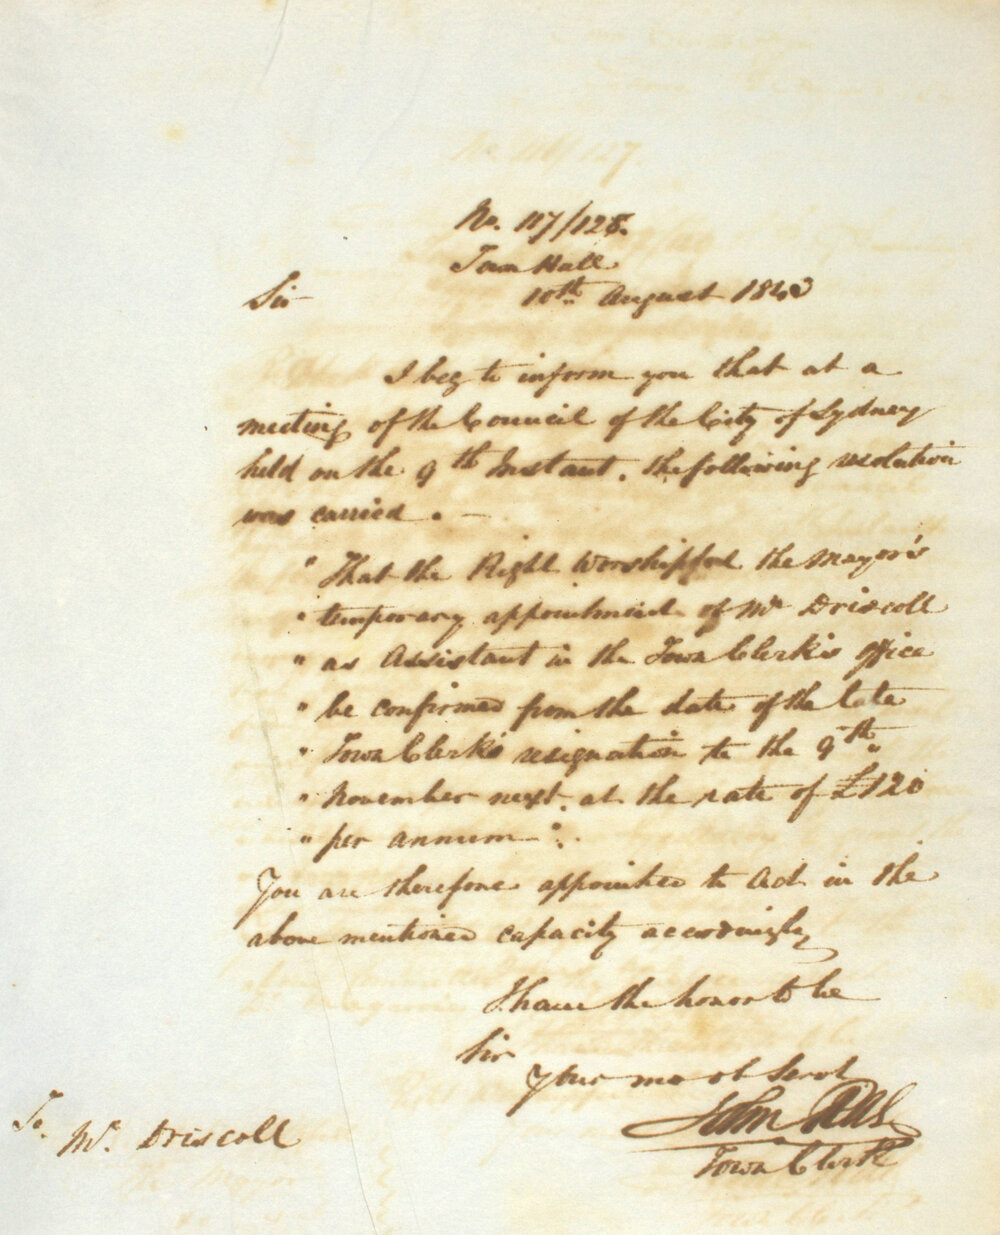 No. 117/128.
Town Hall
Sir 10th August 1843
I beg to inform you that at a
meeting of the Council of the City of Sydney
held on the 9th Instant. the following resolution
was carried. —
" That the Right Worshipful the Mayor's
" temporary appointment of Mr Driscoll
" as Assistant in the Town Clerk's office
" be confirmed from the date of the late
" Town Clerk's resignation to the 9th
" November next. at the rate of £120
" per annum — ".
You are therefore appointed to act in the
above mentioned capacity accordingly
I have the honor to be
Sir
Your mo ob Servt
John
Town Clerk
To.
Mr. Driscoll